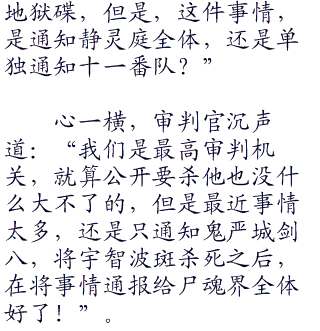 地狱碟，但是，这件事情，
是通知静灵庭全体，还是单
独通知十一番队？”
心一横，审判官沉声
道：“我们是最高审判机
关，就算公开要杀他也没什
么大不了的，但是最近事情
太多，还是只通知鬼严城剑
八，将宇智波斑杀死之后，
在将事情通报给尸魂界全体
好了！”。